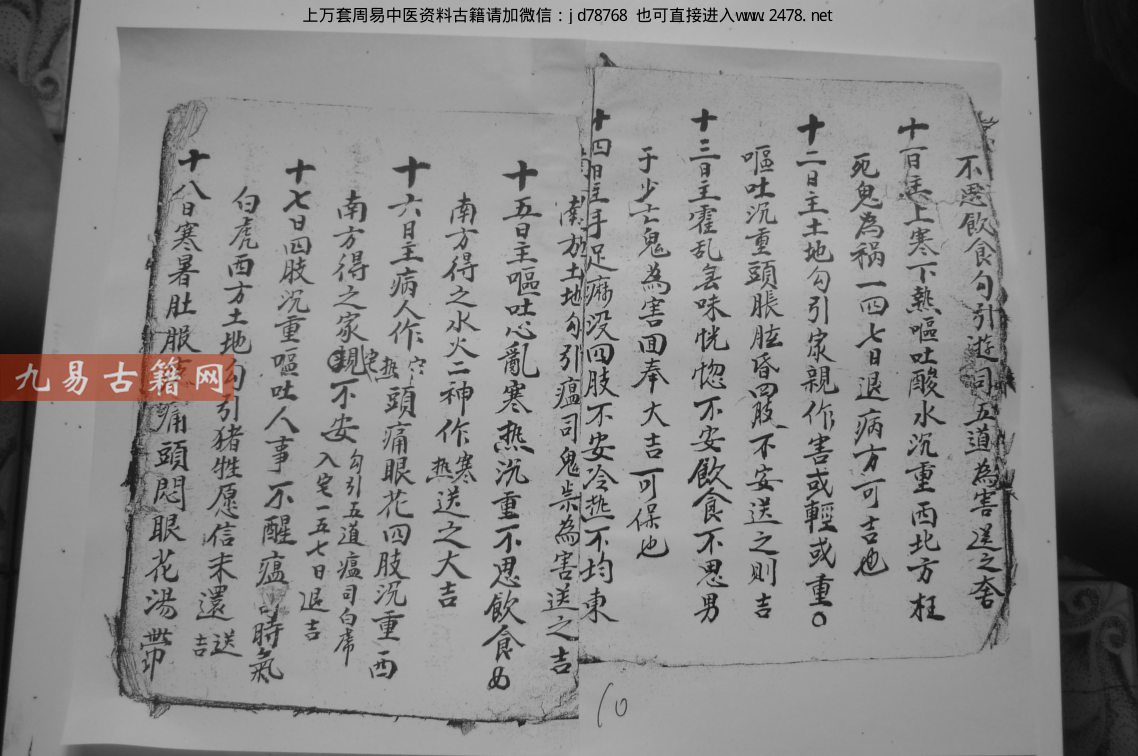 上万套周易中医资料古籍请加微信：jd78768 也可直接进入www.2478.net
不思飲食勾引遊司五道為害送之奎
十一日主上寒下熱嘔吐酸水沉重西北方枉
死鬼為禍一四七日退病方可吉也
十二日主土地勾引家親作害或輕或重。
嘔吐沉重頭脹眩昏四肢不安送之則吉
十三日主霍乱無味恍惚不安飲食不思男
于少亡鬼為害回奉大吉可保也
十四日主手足麻没四肢不安冷热不均東
南方土地勾引瘟司鬼祟為害送之吉
十五日主嘔吐心亂寒热沉重不思飲食如
南方得之水火二神作寒热送之大吉
十六日主病人作热頭痛眼花四肢沉重西
南方得之家親不安勾引五道瘟司白虎入宅一五七日退吉
十七日四肢沉重嘔吐人事不醒瘟司時氣
白虎西方土地勾引猪牲愿信未還送吉
十八日寒暑肚服痛頭悶眼花湯帶
九易古籍网
10